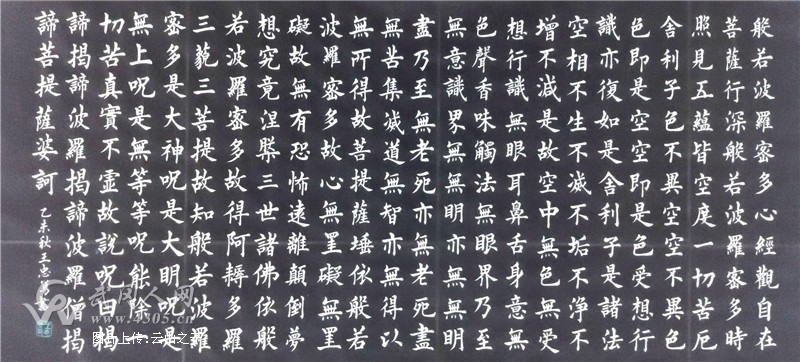 般若波羅密多心經觀自在
菩薩行深般若波羅密多時
照見五蘊皆空度一切苦厄
舍利子色不異空空不異色
色即是空空即是色受想行
識亦復如是舍利子是諸法
空相不生不滅不垢不淨不
增不減是故空中無色無受
想行識無眼耳鼻舌身意無
色聲香味觸法無眼界乃至
無意識界無無明亦無無明
盡乃至無老死亦無老死盡
無苦集滅道無智亦無得以
無所得故菩提薩埵依般若
波羅密多故心無罣礙無罣
礙故無有恐怖遠離顛倒夢
想究竟涅槃三世諸佛依般
若波羅密多故得阿耨多羅
三藐三菩提故知般若波羅
密多是大神呪是大明呪是
無上呪是無等等呪能除一
切苦真實不虛故說呪曰揭
諦揭諦波羅揭諦波羅僧揭
諦菩提薩婆訶
乙未秋王忠
www.4305.cn
图片上传:云山之